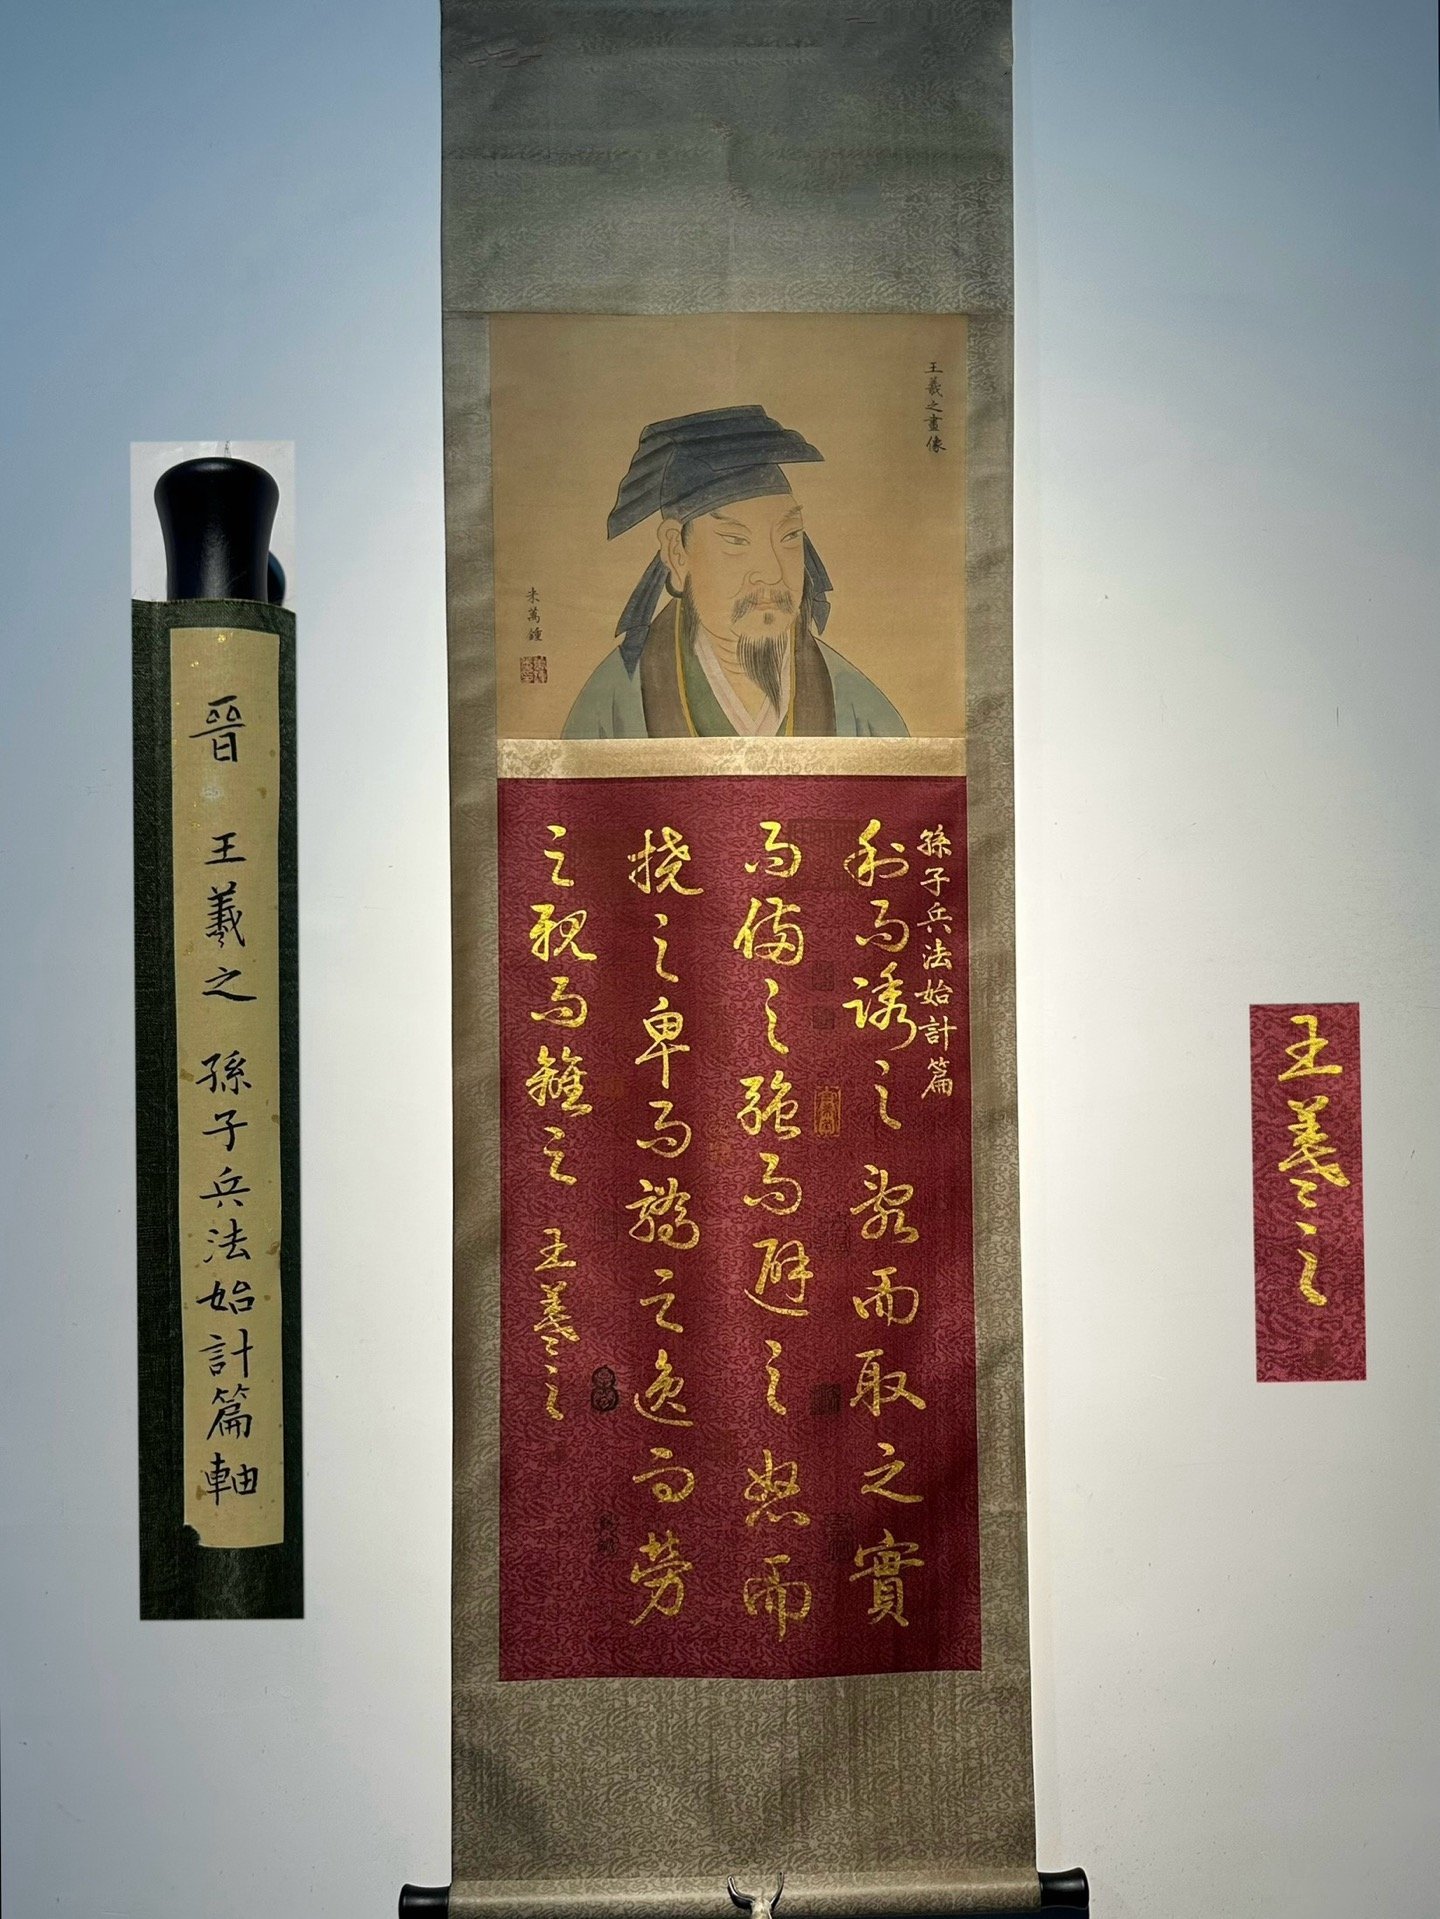 晉 王羲之 孫子兵法始計篇軸
王羲之畫像
米萬鍾
孫子兵法始計篇
利而誘之亂而取之實
而備之強而避之怒而
撓之卑而驕之逸而勞
之親而離之 王羲之
王羲之